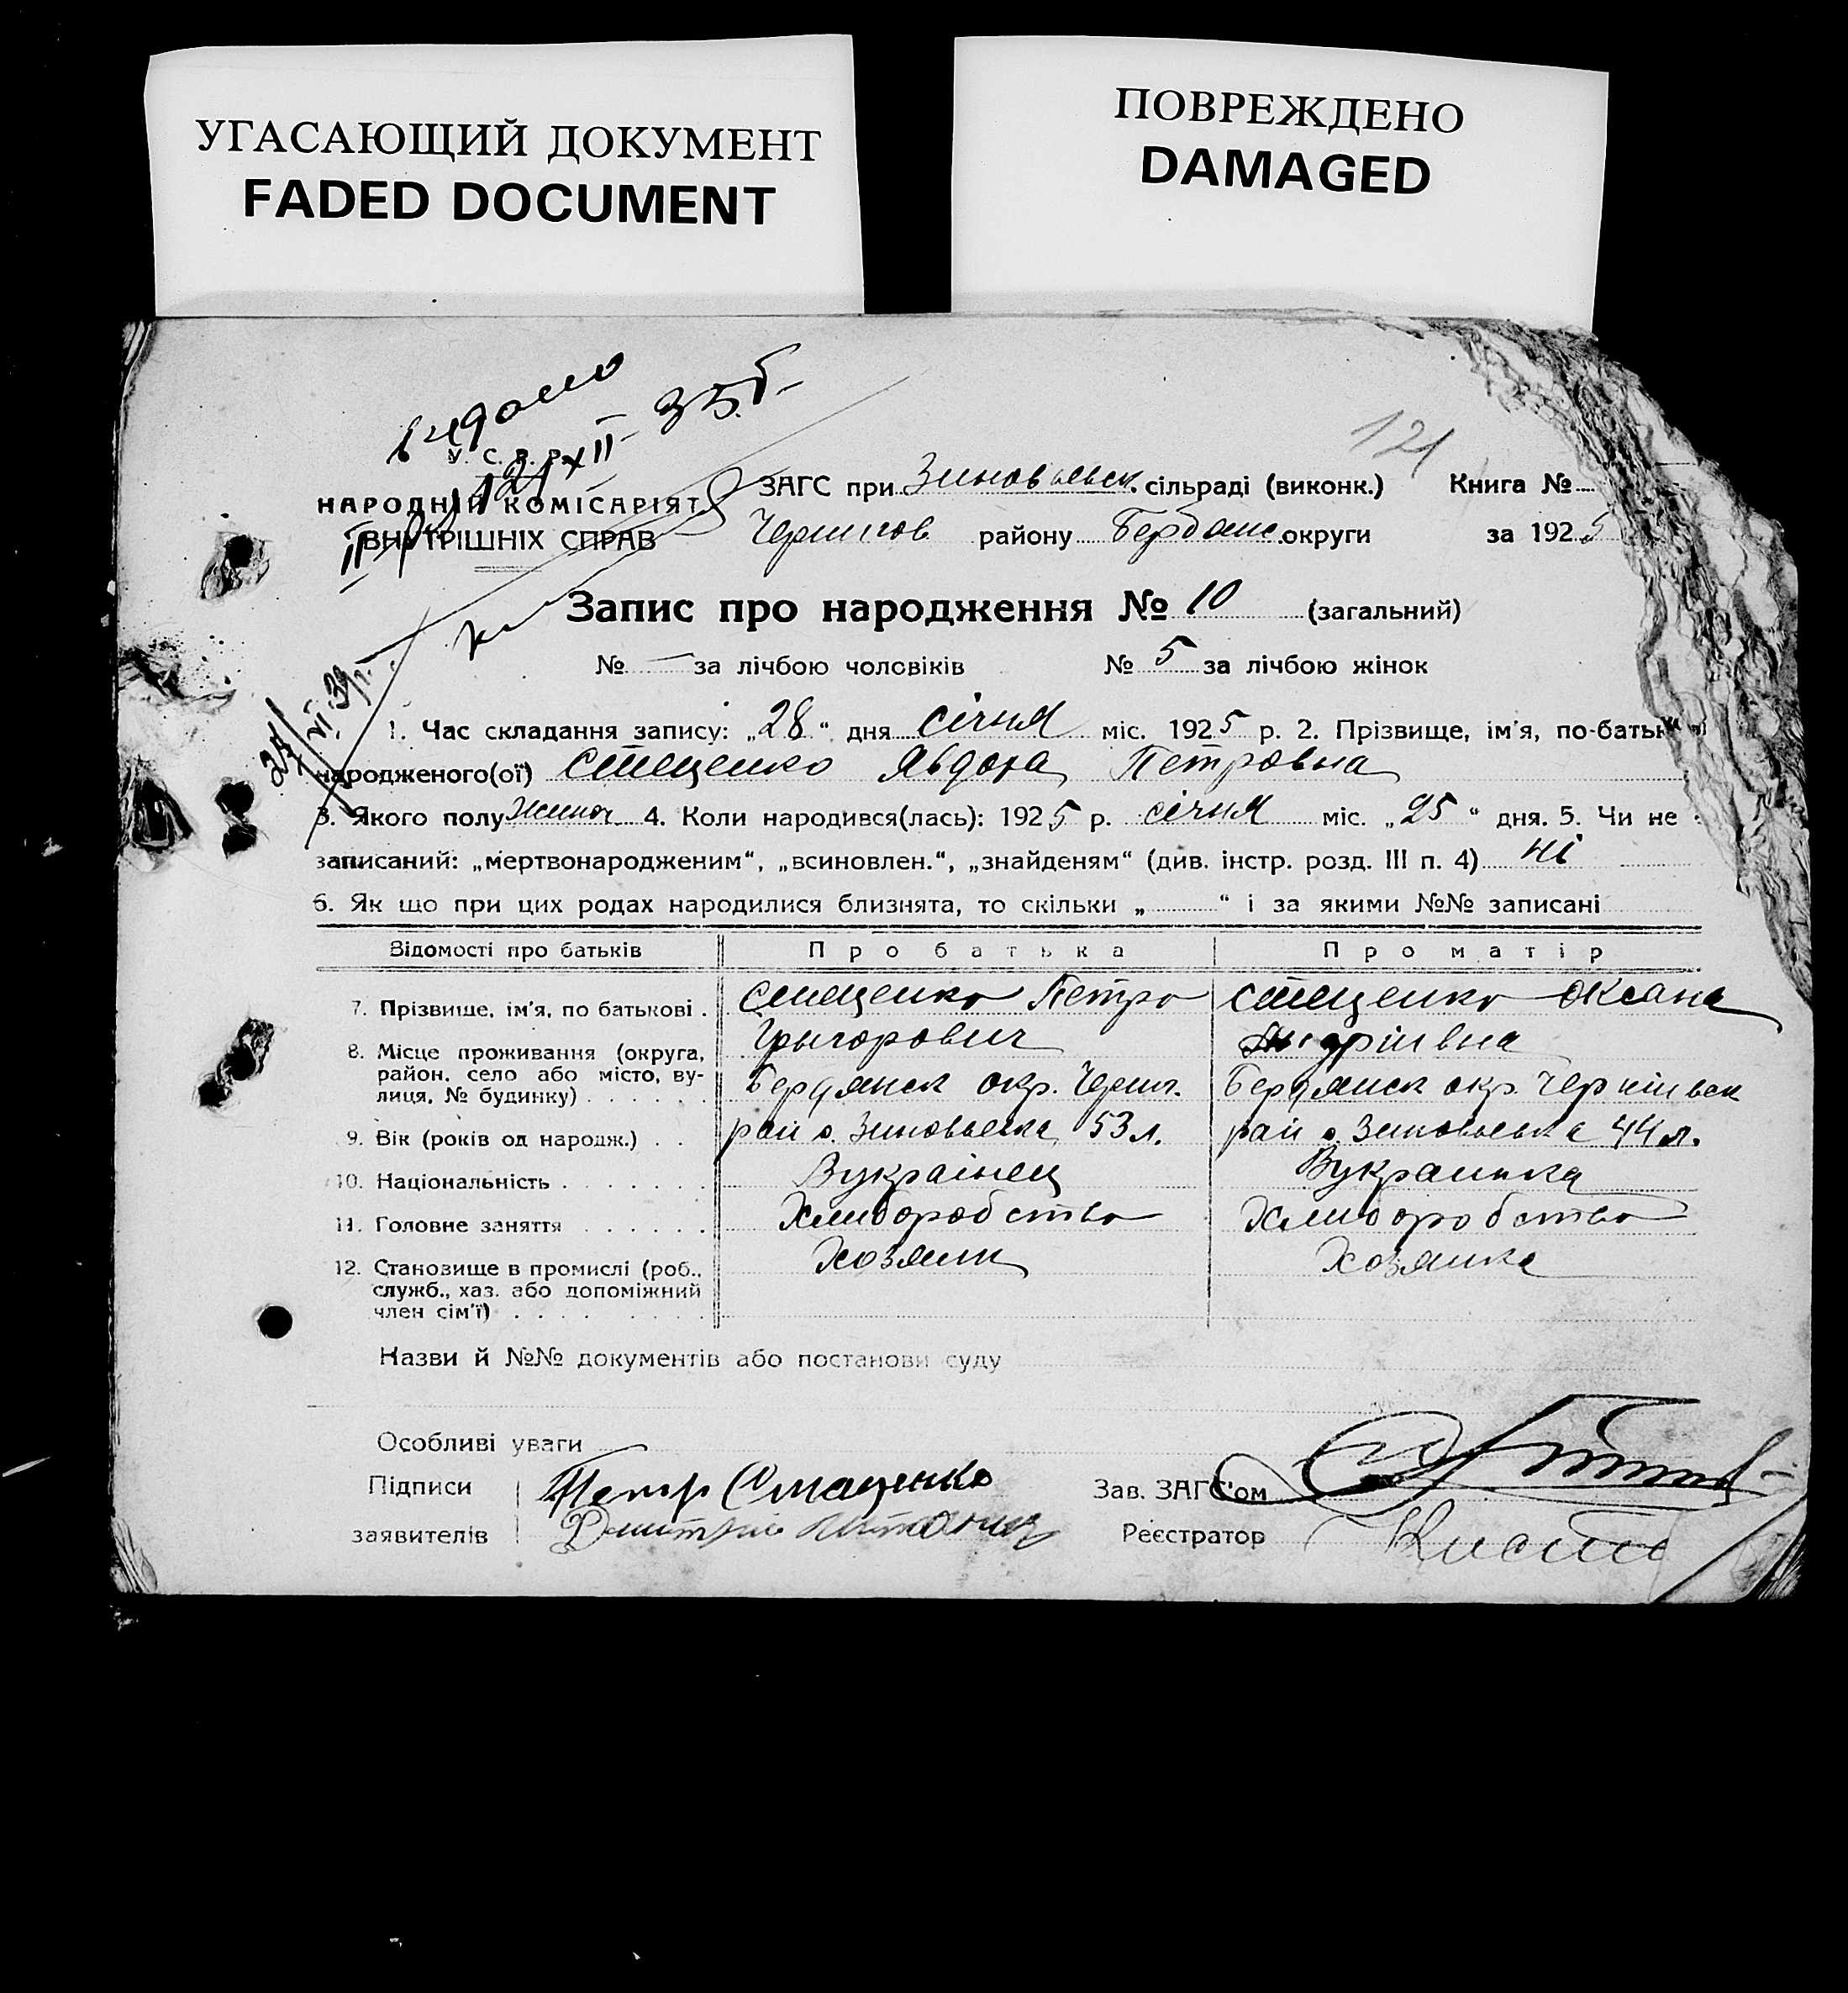 УГАСАЮЩИЙ ДОКУМЕНТ
FADED DOCUMENT
ПОВРЕЖДЕНО
DAMAGED
видано
35 г.
121
У. С. Р. Р.
НАРОДНІЙ КОМІСАРІЯТ
ВНУТРІШНІХ СПРАВ
ЗАГС при Зиновьевск. сільраді (виконк.) Книга №
Чернигов району Бердянс. округи за 1925
Запис про народження № 10 (загальний)
№ — за лічбою чоловіків № 5 за лічбою жінок
1. Час складання запису: „28“ дня січня міс. 1925 р. 2. Прізвище, ім'я, по-батьк
народженого(ої) Стеценко Явдоха Петровна
3. Якого полу жиноч. 4. Коли народився(лась): 1925 р. січня міс. „25“ дня. 5. Чи не
записаний: „мертвонародженим“, „всиновлен.“, „знайденям“ (див. інстр. розд. III п. 4) ні
6. Як що при цих родах народилися близнята, то скільки „ “ і за якими №№ записані
Відомості про батьків Про батька Про матір
7. Прізвище, ім'я, по батькові . Стеценко Петро Стеценко Оксана
Грыгорович Андріивна
8. Місце проживання (округа,
район, село або місто, ву-
лиця, № будинку) . . . . . . Бердянск окр. Черниг. Бердянск окр. Чернигівск
9. Вік (років од народж.) . . рай с. Зиновьевка 53 л. рай с. Зиновьевка 44 л.
10. Національність . . . . . . . Вукраінец Вукраинка
11. Головне заняття . . . . . . Хлиборобство Хлиборобство
12. Становище в промислі (роб., Хозяин Хозяика
служб., хаз. або допоміжний
член сім'ї) . . . . . . . .
Назви й №№ документів або постанови суду
Особливі уваги —
Підписи Петр Стаценко Зав. ЗАГС'ом
заявителів Дмитрий Реєстратор